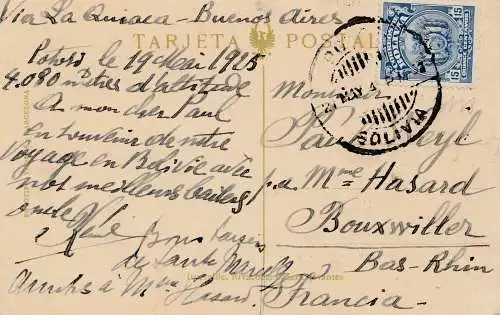 Via La Quiaca - Buenos Aires
TARJETA POSTAL
Potosi le 19 Mai 1925
4.080 mtres d'altitude
A mon cher Paul
En souvenir de notre
voyage en Bolivie avec
nos meilleurs baisers
oncle René
Bons baisers
de tante
Amitiés à Mme Hasard
Monsieur
Paul
p.a. Mme Hasard
Bouxwiller
Bas-Rhin
Francia
15 15
MAY
BOLIVIA